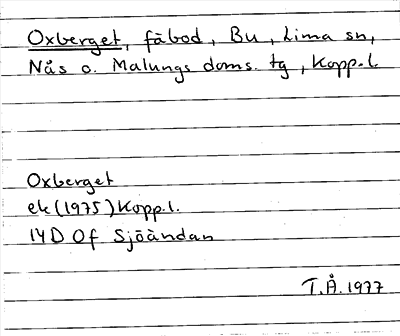 Oxberget, fäbod, Bu, Lima sn,
Nås o. Malungs doms. tg, Kopp.l.
Oxberget
ek (1975) Kopp.l.
14D 0f Sjöändan
T.Å. 1977